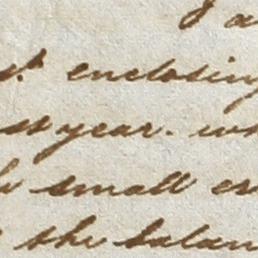 enclosing
year. wh
small er
the balan